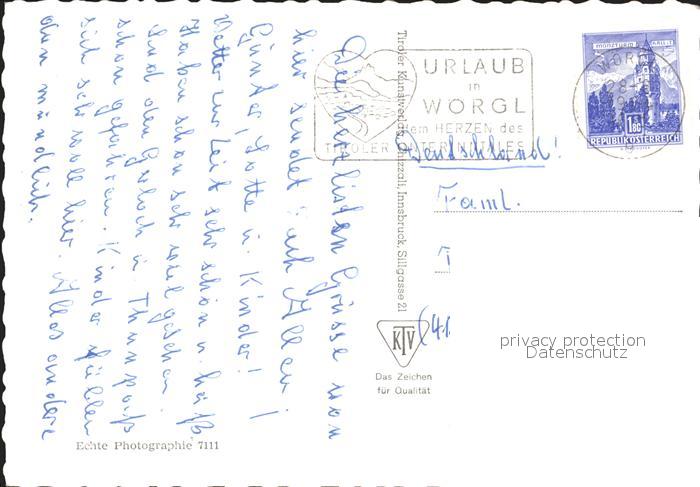 Die herzlichsten Grüsse von
hier sendet Euch Allen!
Günter, Lotte u. Kinder!
Wetter zur Zeit sehr schön u. heiß
Haben schon sehr viel gesehen.
Sind den Gerlos u. Thurnpaß
schon gefahren. Kinder fühlen
sich sehr wohl hier. Alles andere
dann mündlich.
Echte Photographie 7111
Tiroler Kunstverlag Chizzali, Innsbruck, Sillgasse 21
URLAUB
in
WÖRGL
dem HERZEN des
TIROLER UNTERINNTALES
WÖRGL
MÜNZTURM HALL i. T.
1.80
REPUBLIK ÖSTERREICH
Deutschland!
Faml.
KTV
Das Zeichen
für Qualität
(41
privacy protection
Datenschutz